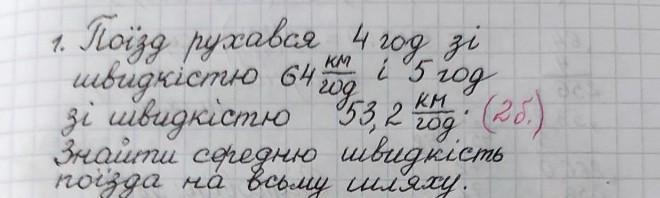 1. Поїзд рухався 4 год зі
швидкістю 64 км/год і 5 год
зі швидкістю 53,2 км/год. (2б.)
Знайти середню швидкість
поїзда на всьому шляху.